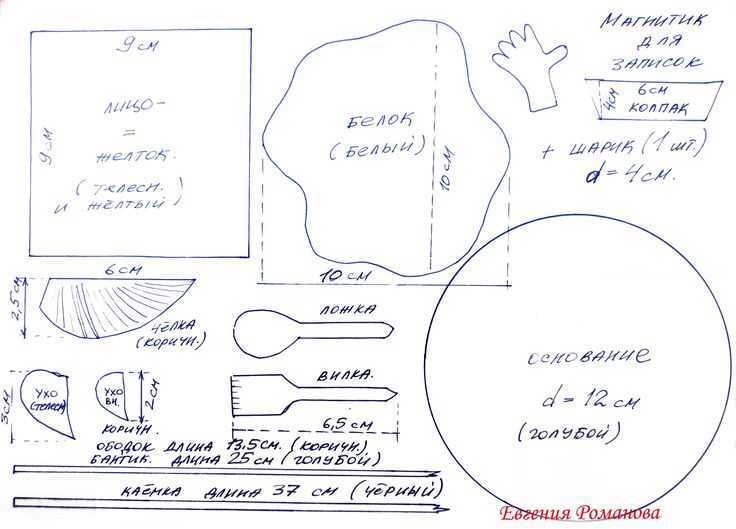 9 см
9 см
ЛИЦО-
=
ЖЕЛТОК.
(ТЕЛЕСН.
И ЖЁЛТЫЙ)
БЕЛОК
(БЕЛЫЙ)
10 СМ
10 СМ
МАГНИТИК
ДЛЯ
ЗАПИСОК
4СМ
6СМ
КОЛПАК
+ ШАРИК (1 ШТ.)
d = 4 СМ.
6 СМ
2,5 СМ
ЧЁЛКА
(КОРИЧН.)
ЛОЖКА
ВИЛКА.
6,5 СМ
3СМ
УХО
(ТЕЛЕСН)
УХО
ВН.
2 СМ
КОРИЧН.
ОБОДОК ДЛИНА 13,5СМ. (КОРИЧН.)
БАНТИК. ДЛИНА 25 СМ (ГОЛУБОЙ)
КАЁМКА ДЛИНА 37 СМ (ЧЁРНЫЙ)
ОСНОВАНИЕ
d = 12 СМ
(ГОЛУБОЙ)
Евгения Романова